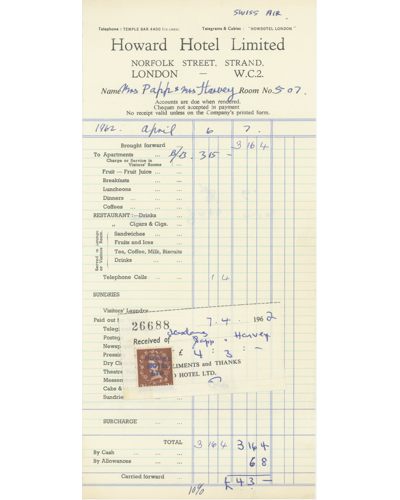 SWISS AIR.
Telephone: TEMPLE BAR 4400 Telegrams & Cables: "HOWDOTEL LONDON"
Howard Hotel Limited
NORFOLK STREET, STRAND,
LONDON — W.C.2.
Name Mrs Papp & Mrs Harvey Room No. 507.
Accounts are due when rendered.
Cheques not accepted in payment
No receipt valid unless on the Company's printed form.
1962. April 6 7.
Brought forward 3 16 4
To Apartments ... B/B. 3 15 -
Charge or Service in Visitors' Rooms
Fruit — Fruit Juice ...
Breakfasts ...
Luncheons ...
Dinners ...
Coffees ...
RESTAURANT — Drinks
" Cigars & Cigs.
Served in Lounge or Visitors' Room
Sandwiches ...
Fruits and Ices
Tea, Coffee, Milk, Biscuits
Drinks ...
Telephone Calls ... 1 4
SUNDRIES
Visitors' Laundry
Paid out
26688 7. 4. 1962
Received of Mesdames Papp & Harvey
£ 4 : 3 : -
COMPLIMENTS and THANKS
HOTEL LTD.
Teleg
Postag
Newsp
Pressin
Dry Cl
Theatre
Messen
Cake &
Sundrie
SURCHARGE ...
TOTAL 3 16 4 3 16 4
By Cash ... 6 8
By Allowances ...
Carried forward ... £ 4 3 -
10%